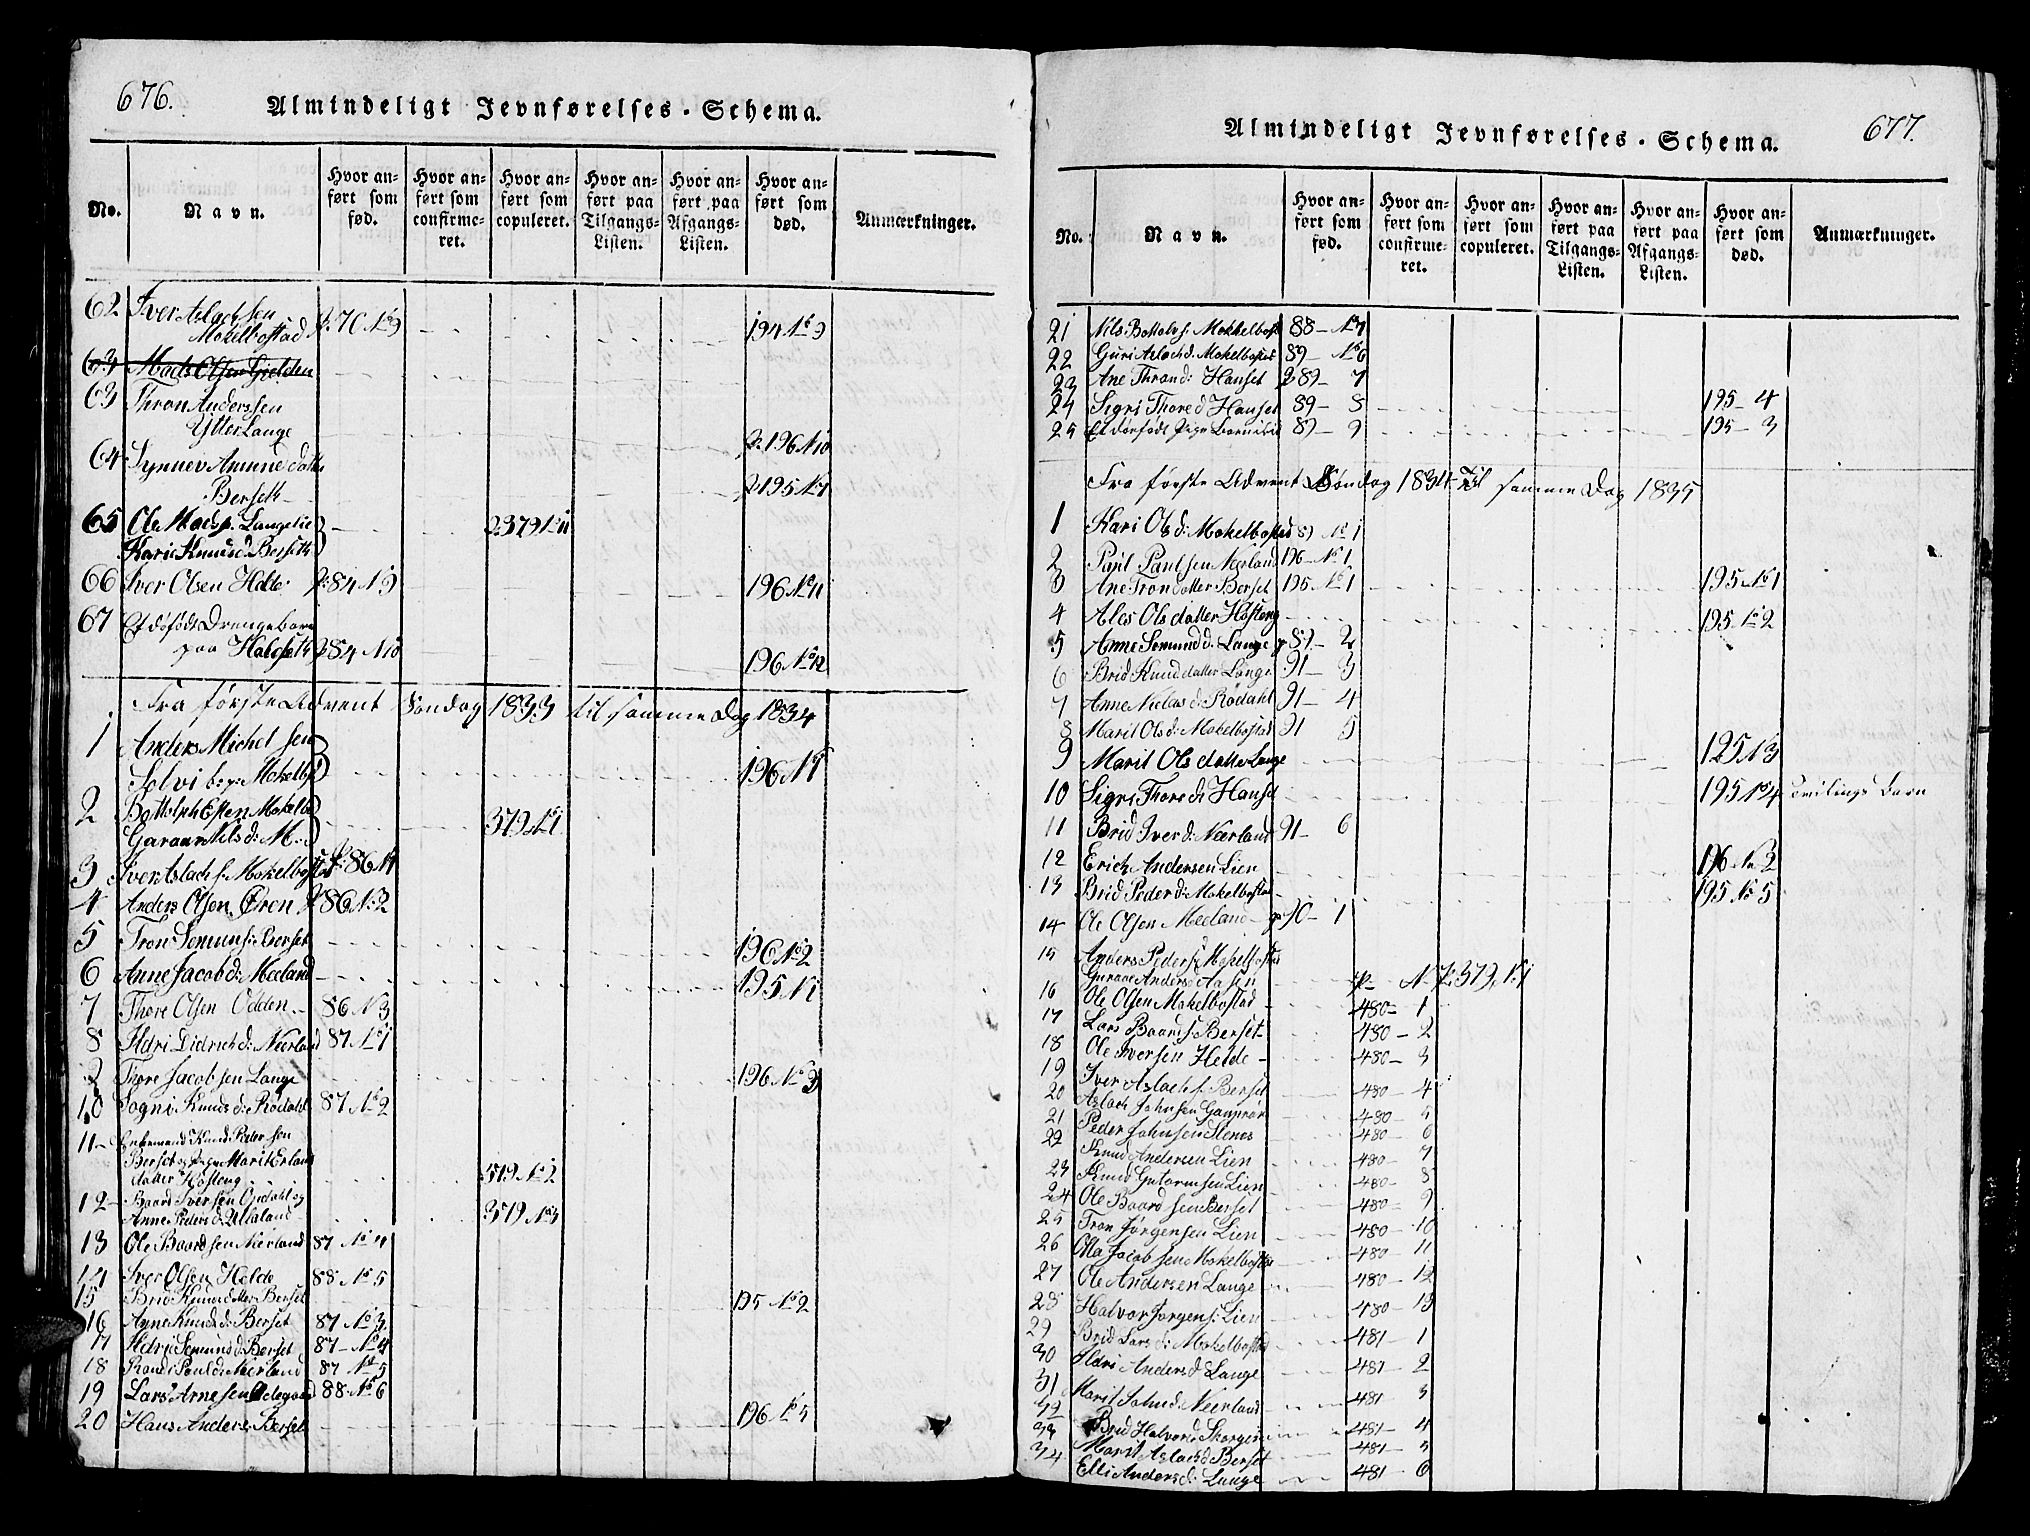 676.
Almindeligt Jevnførelses-Schema.
No. Navn. Hvor anført som fød. Hvor anført som confirmeret. Hvor anført som copuleret. Hvor anført paa Tilgangs-Listen. Hvor anført paa Afgangs-Listen. Hvor anført som død. Anmærkninger.
62 Iver Aslachsen
Mokelbostad p. 70 No 9 194 No 9
63 Mads Olsen Gielden
63 Thron Anderssen
Ytter Lange p. 196 No 10
64 Synnev Amunddatter
Berseth p. 195 No 7
65 Ole Mads s. Langelie p. 379 No 11
Kari Knuds d. Berseth
66 Iver Olsen Helde p. 84 No 9 196 No 11
67 Et døfødt Drengebarn
paa Halseth p. 84 No 10 196 No 12
Fra første Advent Søndag 1833 til samme Dag 1834
1 Anders Michelsen
Solvi Mokelb. 196 No 1
2 Bottolph Esten Mokelb.
Garaar Nils d: M. 379 No 1
3 Iver Aslach s. Mokelbostad p. 86 No 1
4 Anders Olsen Øren p. 86 No 2
5 Tron Semun s: Berset 196 No 2
6 Anne Jacob d: Meeland 195 No 1
7 Thore Olsen Odden 86 No 3
8 Ildri Didrich d: Neerland 87 No 1
9 Thore Jacobsen Lange 196 No 3
10 Sogni Knuds d: Rødahl 87 No 2
11 Enkemand Knud Pedersen
Berset og Pige Marit Erland
datter Hosteng 379 No 2
12 Baard Iversen Opdahl og
Anne Peders d: 379 No 3
13 Ole Baardsen Neerland 87 No 4
14 Iver Olsen Helde 88 No 5
15 Brid Knuddatter Berset 195 No 2
16 Anne Knuds d: Berset 87 No 3
17 Ildri Semund d: Berset 87 No 4
18 Randi Poul d: Neerland 87 No 5
19 Lars Arnesen Ødegaard 88 No 6
20 Hans Anders s. Berset 196 No 5
677.
Almindeligt Jevnførelses-Schema.
No. Navn. Hvor anført som fød. Hvor anført som confirmeret. Hvor anført som copuleret. Hvor anført paa Tilgangs-Listen. Hvor anført paa Afgangs-Listen. Hvor anført som død. Anmærkninger.
21 Nils Bottolv s. Mokkelbost 88 - No 7
22 Guri Aslach d. Mokelbostad 89 - No 6
23 Ane Thrond d: Hanset p. 89 - 7
24 Sigri Thore d Hanset 89 - 8 195 - 4
25 Et dødfødt Pige Barn 89 - 9 195 - 3
Fra første Advent Søndag 1834 Til samme Dag 1835
1 Kari Ols d: Mokelbostad 89 No 1
2 Paul Paulsen Neerland 196 - No 1
3 Ane Trondatter Berset 195 No 1 195 No 1
4 Ales Olsdatter Hosteng 195 No 2
5 Anne Semund d. Lange p 89 - 2
6 Brid Knuddatter Lange 91 - 3
7 Anne Niclas d: Rødahl 91 - 4
8 Marit Ols d: Mokelbostad 91 5
9 Marit Olsdatter Lange 195 No 3
10 Sigri Thore d: Hanset 195 No 4 Tvilings Barn
11 Brid Iver d: Neerland 91 - 6
12 Erich Andersen Lien 196 No 2
13 Brid Peder d: Mokelbostad 195 No 5
14 Ole Olsen Meeland p 90 - 1
15 Anders Peders s: Mokelbostad
Anders d 379 No 1
16 Ole Olsen Mokelbostad 480 - 1
17 Lars Baard s: Berset 480 - 2
18 Ole Iversen Helde 480 - 3
19 Iver Aslach s: Berset 480 - 4
20 Aslach Johnsen 480 - 5
21 Peder Johnsen Stenes 480 - 6
22 Knud Andersen Lien 480 - 7
23 Knud Gutormsen Lien 480 - 8
24 Ole Baardsen Berset 480 - 9
25 Tron Jørgensen Lien 480 - 10
26 Ola Jacobsen Mokelbostad 480 - 11
27 Ole Andersen Lange 480 - 12
28 Halvor Jørgens s: Lien 480 - 13
29 Brid Lars d: Mokelbostad 481 - 1
30 Ildri Anders d: Lange 481 - 2
31 Marit John d: Neerland 481 - 3
32 Brid Halvor d 481 - 4
33 Marit Aslach d Berset 481 - 5
34 Elli Anders d: Lange 481 - 6